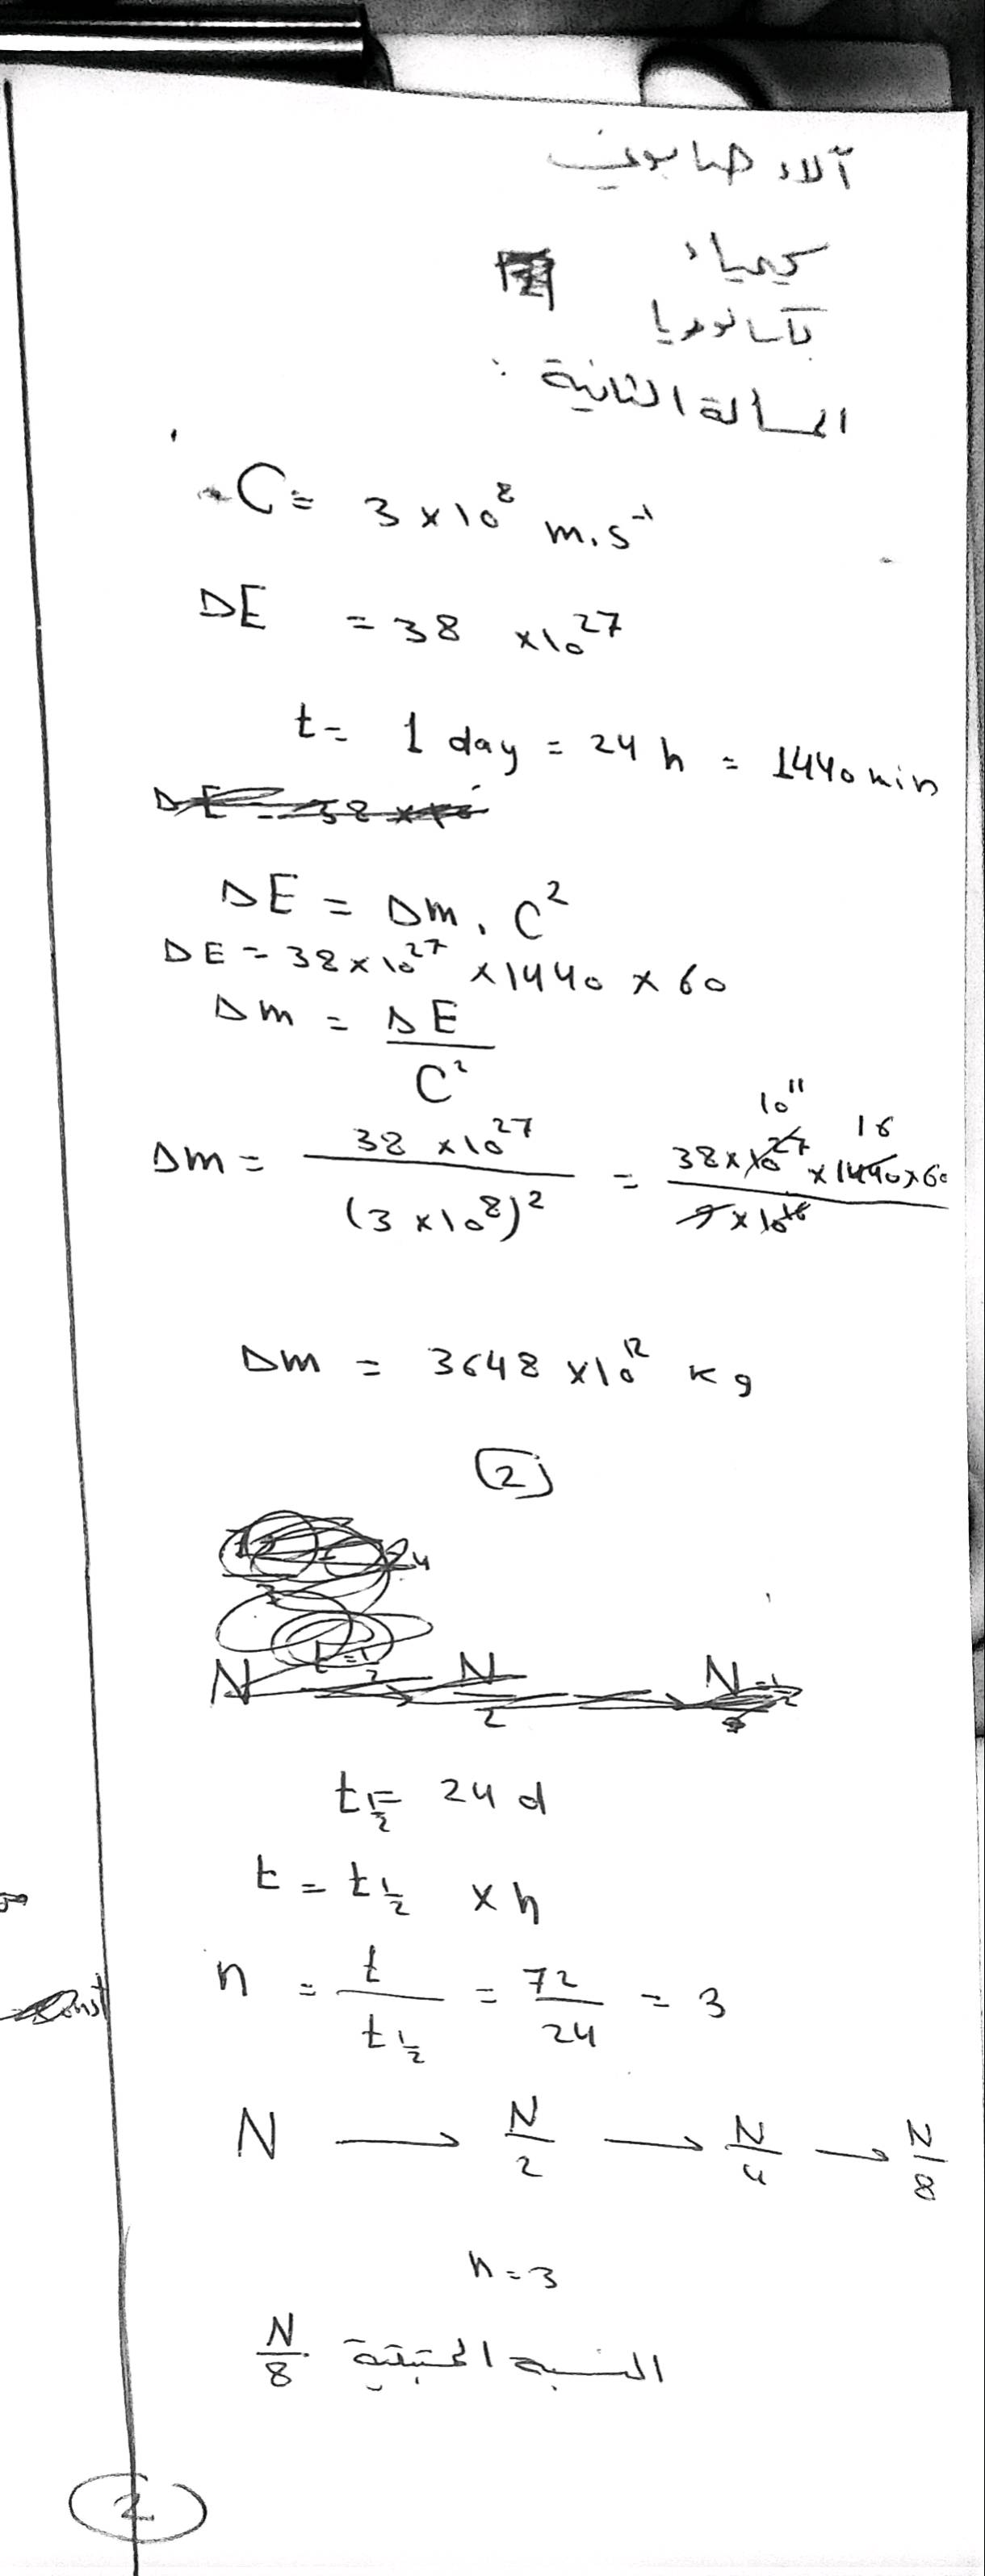 آلاء صابوني
كيمياء
بكالوريا
المسألة الثانية :
C = 3 × 10⁸ m.s⁻¹
ΔE = 38 × 10²⁷
t = 1 day = 24 h = 1440 min
ΔE = Δm . C²
ΔE = 38 × 10²⁷ × 1440 × 60
Δm = ΔE / C²
Δm = 38 × 10²⁷ / (3 × 10⁸)² = 38 × 10²⁷ × 1440 × 60 / 9 × 10¹⁶
10¹¹ 16
Δm = 3648 × 10¹² kg
2
t½ = 24 d
t = t½ × n
n = t / t½ = 72 / 24 = 3
N → N/2 → N/4 → N/8
n = 3
النسبة المتبقية N/8
2